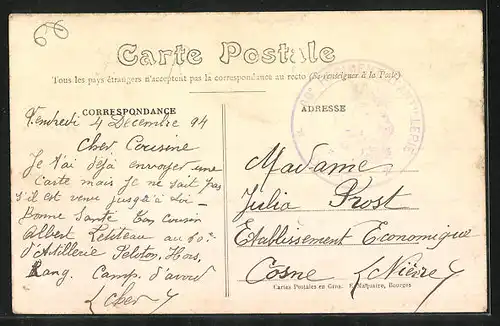 Carte Postale
Tous les pays étrangers n'acceptent pas la correspondance au recto (Se renseigner à la Poste)
CORRESPONDANCE
ADRESSE
Vendredi 4 Décembre 94
Cher Cousine
Je t'ai déjà envoyer une
carte mais je ne sait pas
s'il est venue jusqu'à toi -
Bonne Santé Ton cousin
Albert Petiteau au
d'Artillerie Peloton Hors
Rang. Camp. d'avord
(Cher)
Madame
Julia Prost
Etablissement Economique
Cosne (Nièvre)
Cartes Postales en Gros. Bourges
D'ARTILLERIE